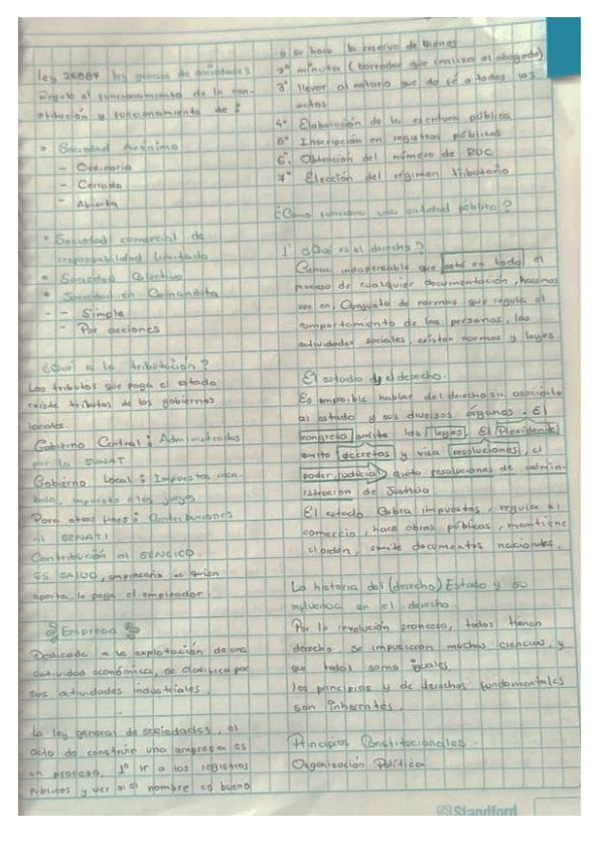 Ley 26887 ley general de sociedades
Regula el funcionamiento de la con-
stitución y funcionamiento de:
• Sociedad Anónima
- Ordinaria
- Cerrada
- Abierta
• Sociedad comercial de
responsabilidad limitada
• Sociedad Colectiva
• Sociedad en Comandita
- - Simple
- Por acciones
¿Qué es la tributación?
Los tributos que paga el estado
existe tributos de los gobiernos
locales.
Gobierno Central: Administrados
por la SUNAT
Gobierno Local: Impuestos
impuesto a los juegos
Para otros fines: Contribuciones
al SENATI
Contribución al SENCICO.
ES SALUD, empresario es quien
aporta, lo paga el empleador.
Empresa
Dedicada a la explotación de una
actividad económica, se clasifica por
sus actividades industriales.
La ley general de sociedades, el
acto de construir una empresa es
un proceso, 1° ir a los registros
públicos y ver si el nombre es bueno
se hace la reserva de bienes
2° minuta (borrador que realiza el abogado)
3° llevar al notario que da fé a todos los
actos
4° Elaboración de la escritura pública
5° Inscripción en registros públicos
6° Obtención del número de RUC
7° Elección del régimen tributario
¿Cómo funciona una entidad pública?
1° ¿Qué es el derecho?
Ciencia indispensable que está en todo el
proceso de cualquier documentación, hacemos
uso en, Conjunto de normas que regula el
comportamiento de las personas, las
actividades sociales, existen normas y leyes
El estado y el derecho.
Es imposible hablar del derecho sin asociarlo
al estado y sus diversos órganos. El
congreso emite las leyes. El Presidente
emite decretos y visa resoluciones, el
poder judicial dicta resoluciones de admin-
istración de Justicia
El estado Cobra impuestos, regula el
comercio, hace obras públicas, mantiene
el orden, emite documentos nacionales.
La historia del (derecho) Estado y su
influencia en el derecho.
Por la revolución francesa, todos tienen
derecho, se impusieron muchas ciencias, y
que todos somos iguales,
los principios y de derechos fundamentales
son inherentes.
Principios Constitucionales.
Organización Política
Standford